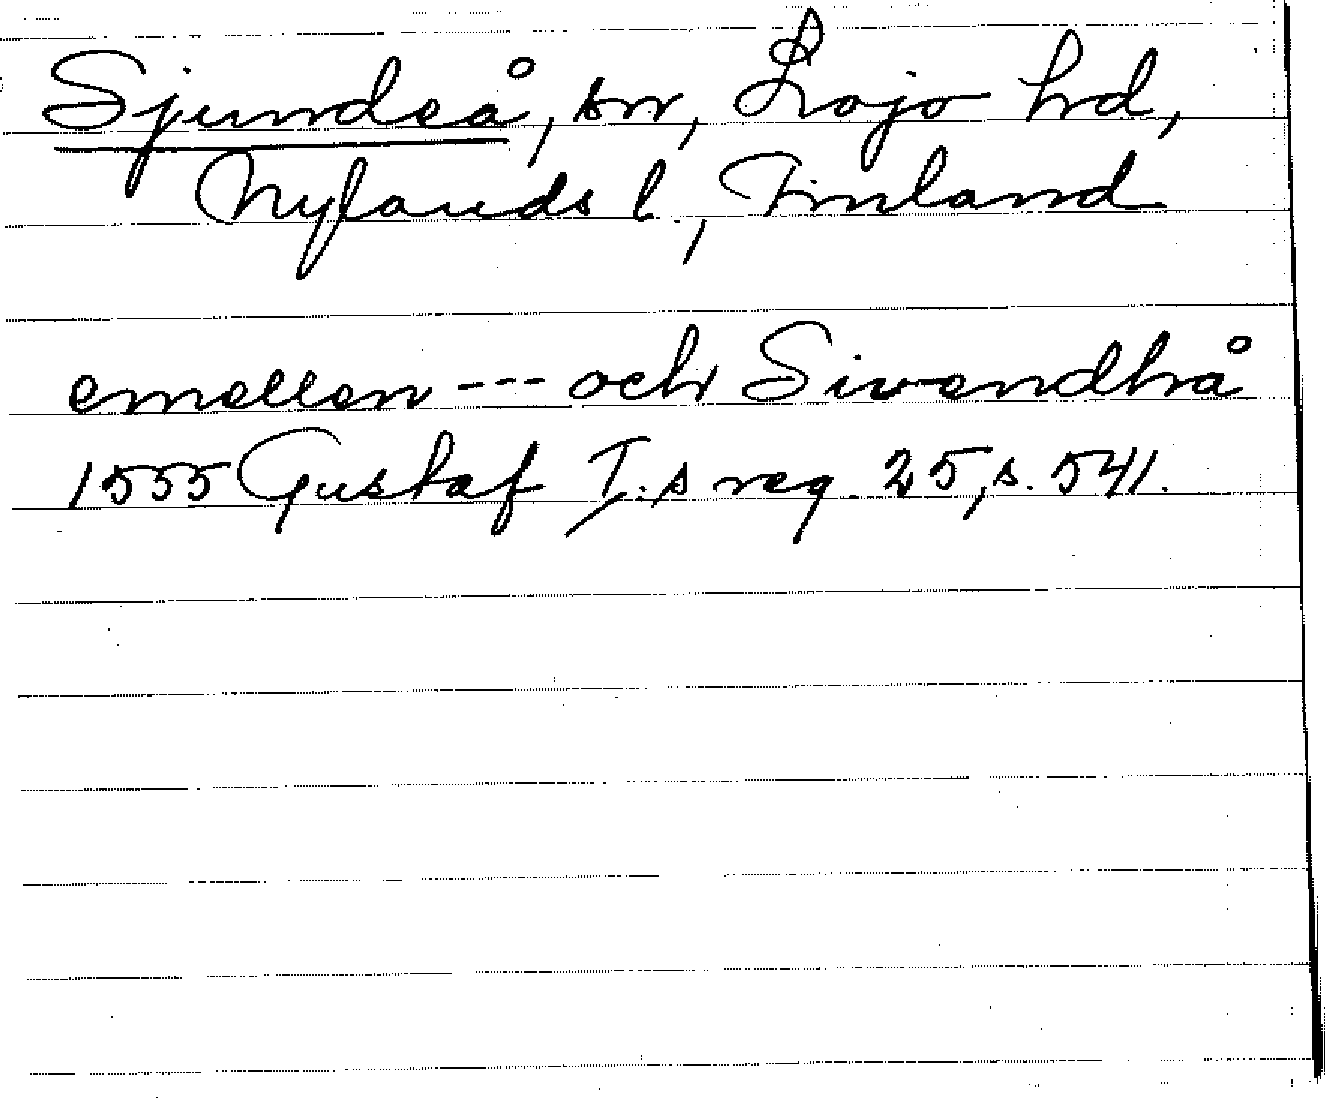 Sjundeå, sn, Lojo hd,
Nylands l., Finland
emellen --- och Sivendhå
1555 Gustaf I:s reg. 25, s. 541.